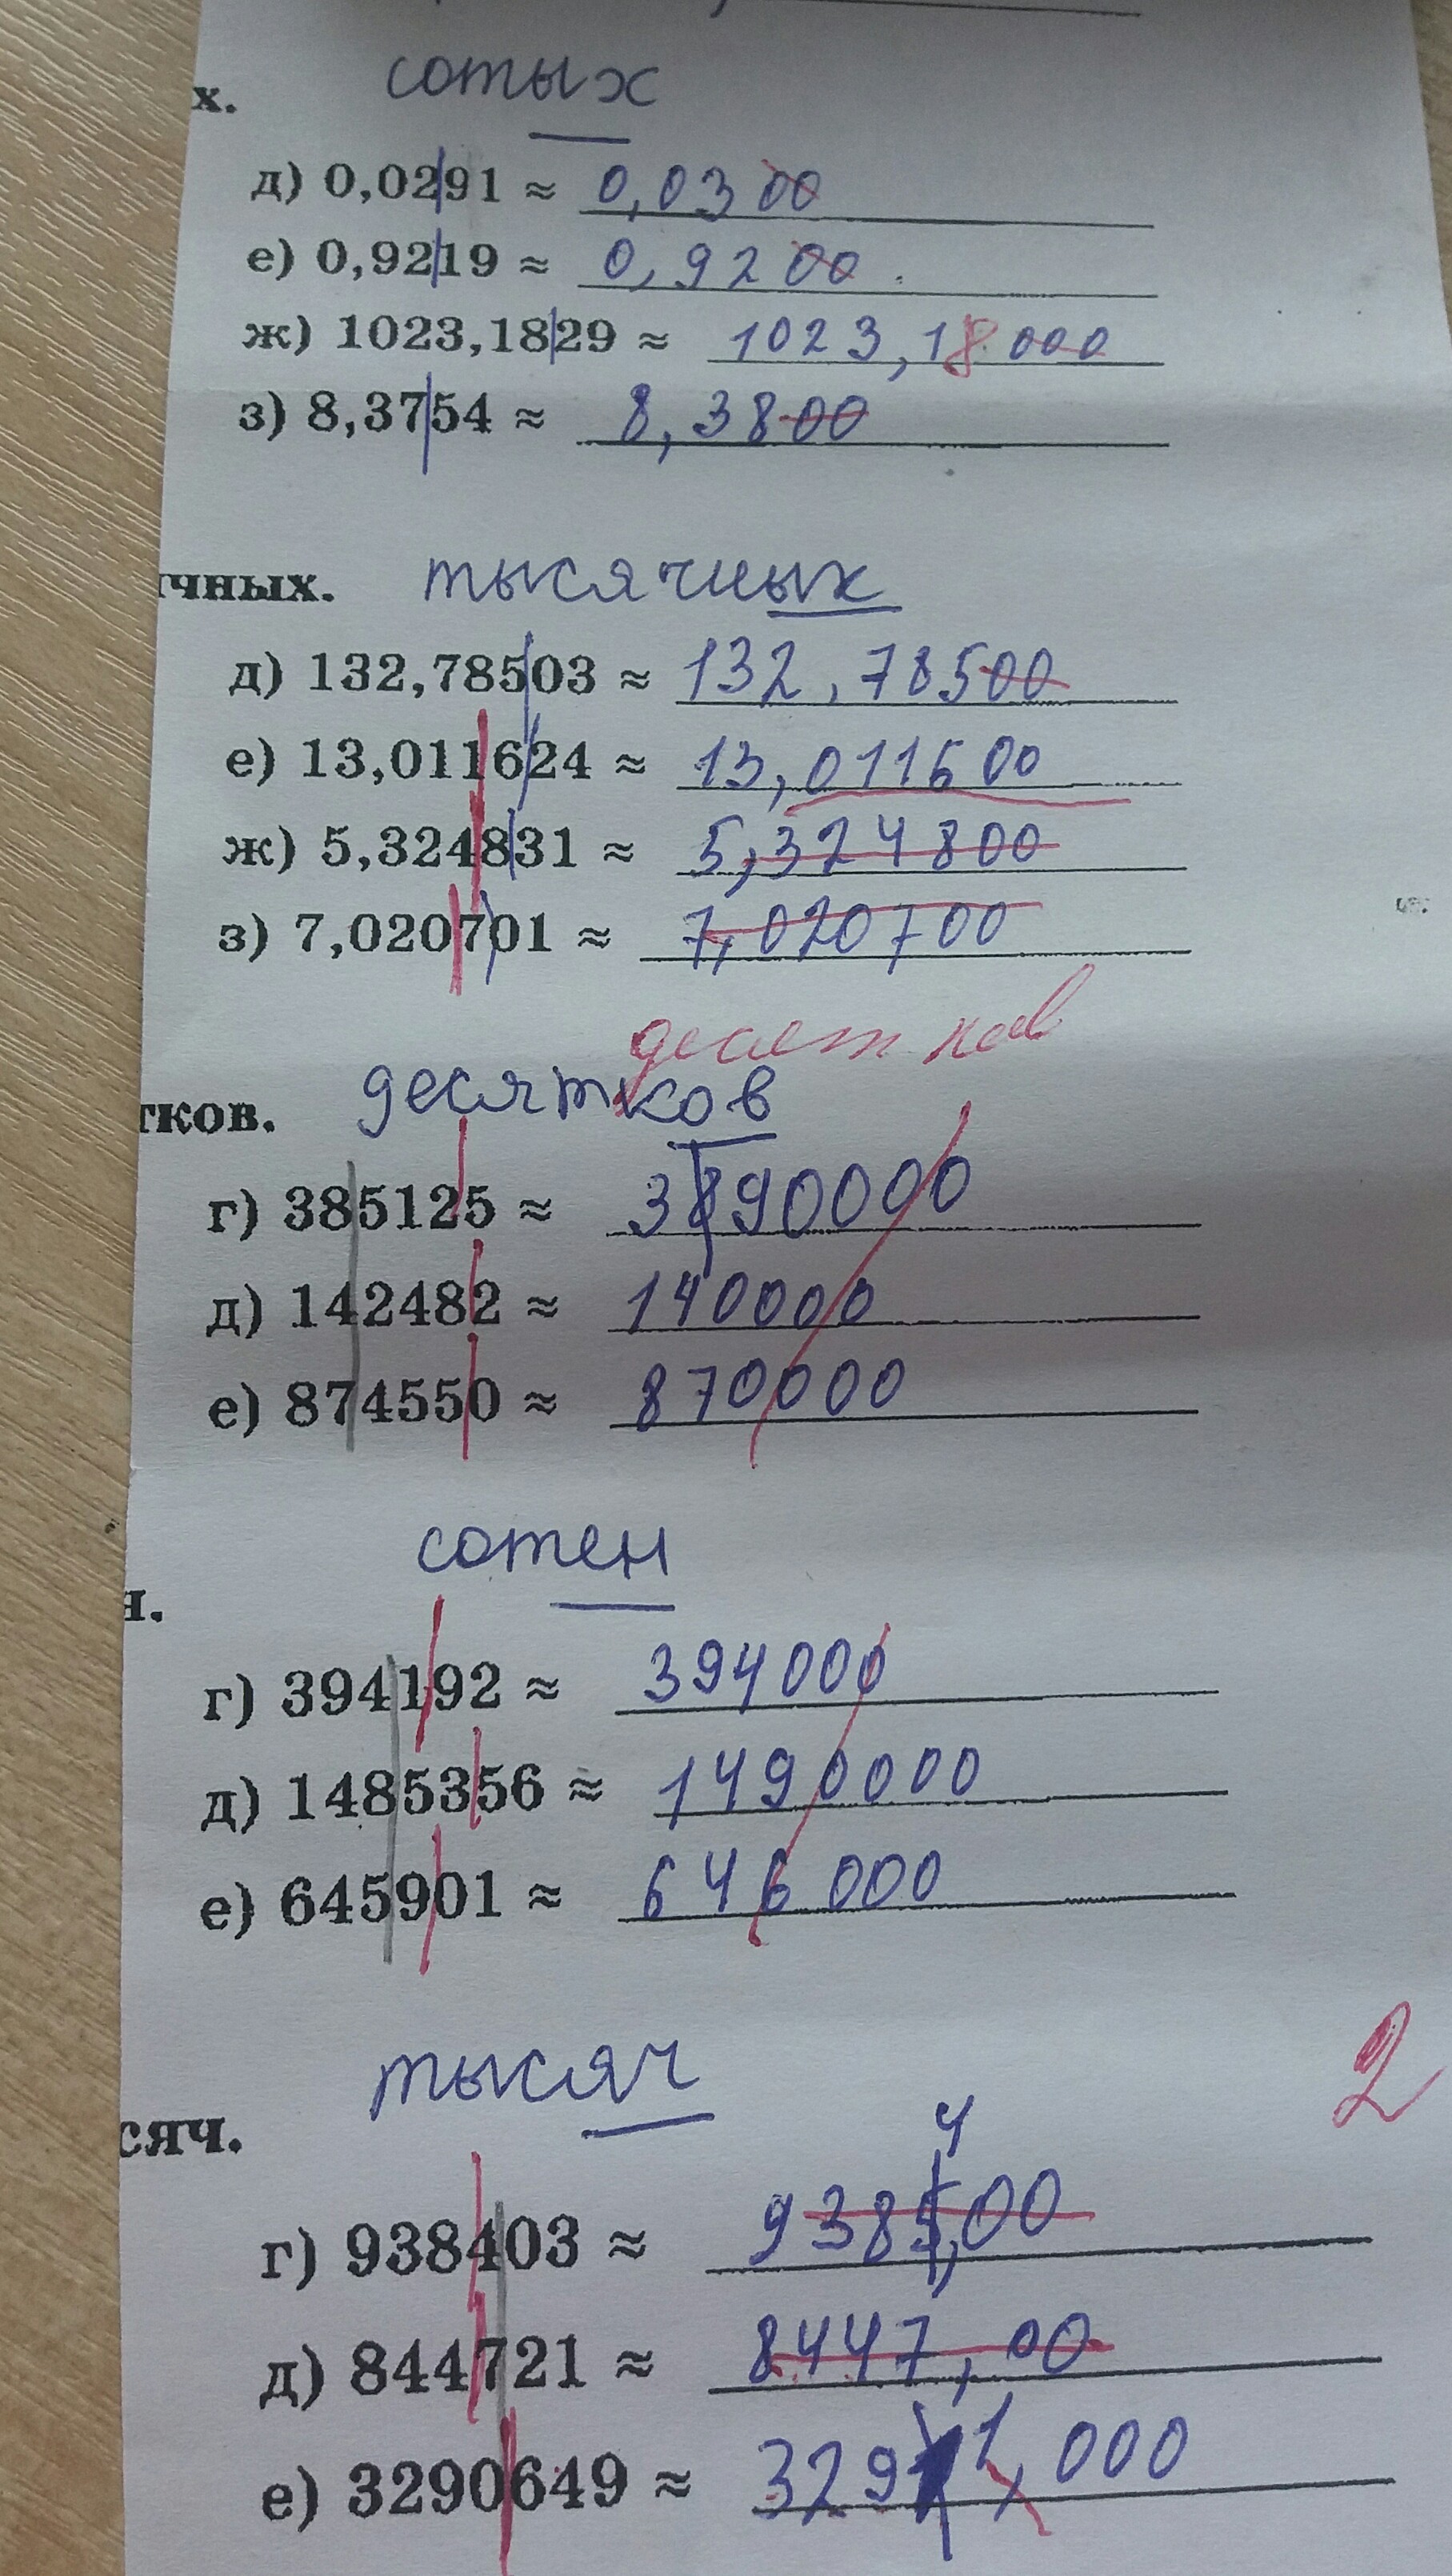 х. сотых
д) 0,0291 ≈ 0,0300
е) 0,9219 ≈ 0,9200
ж) 1023,1829 ≈ 1023,18000
з) 8,3754 ≈ 8,3800
чных. тысячных
д) 132,78503 ≈ 132,78500
е) 13,011624 ≈ 13,011600
ж) 5,324831 ≈ 5,324800
з) 7,020701 ≈ 7,020700
десятков
тков. десятков
г) 385125 ≈ 3890000
д) 142482 ≈ 140000
е) 874550 ≈ 870000
сотен
н.
г) 394192 ≈ 394000
д) 1485356 ≈ 1490000
е) 645901 ≈ 646000
тысяч
2
сяч.
4
г) 938403 ≈ 9385,00
д) 844721 ≈ 8447,00
е) 3290649 ≈ 3291,000